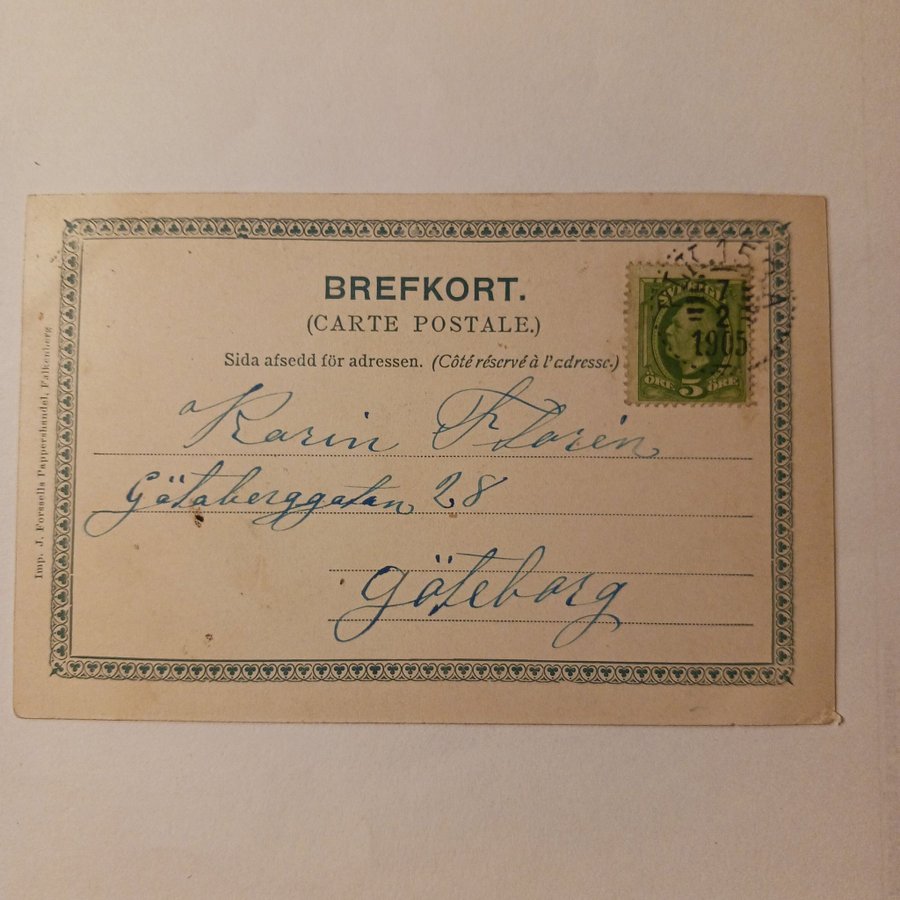 BREFKORT.
(CARTE POSTALE.)
Sida afsedd för adressen. (Côté réservé à l'adresse.)
SVERIGE
ÖRE 5 ÖRE
7
2
1905
Karin Florén
Götaberggatan 28
Göteborg
Imp. J. Forssells Pappershandel, Falkenberg